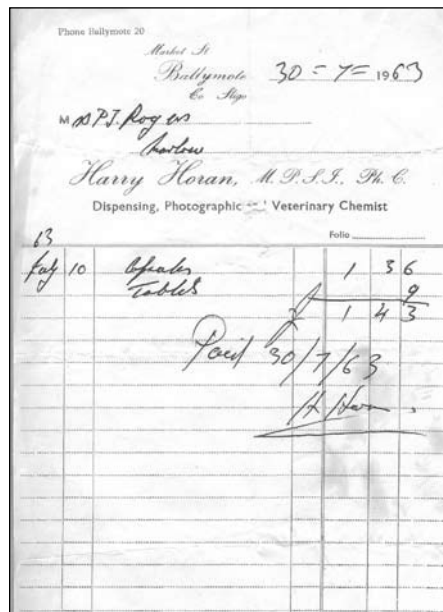 Phone Ballymote 20
Market St
Ballymote
Co Sligo
30 = 7 = 1963
M rs P.J. Rogers
Harry Horan, M.P.S.I., Ph.C.
Dispensing, Photographic and Veterinary Chemist
Folio
63
July 10 1 3 6
Tablets 9
£ 1 4 3
Paid 30/7/63
H Horan